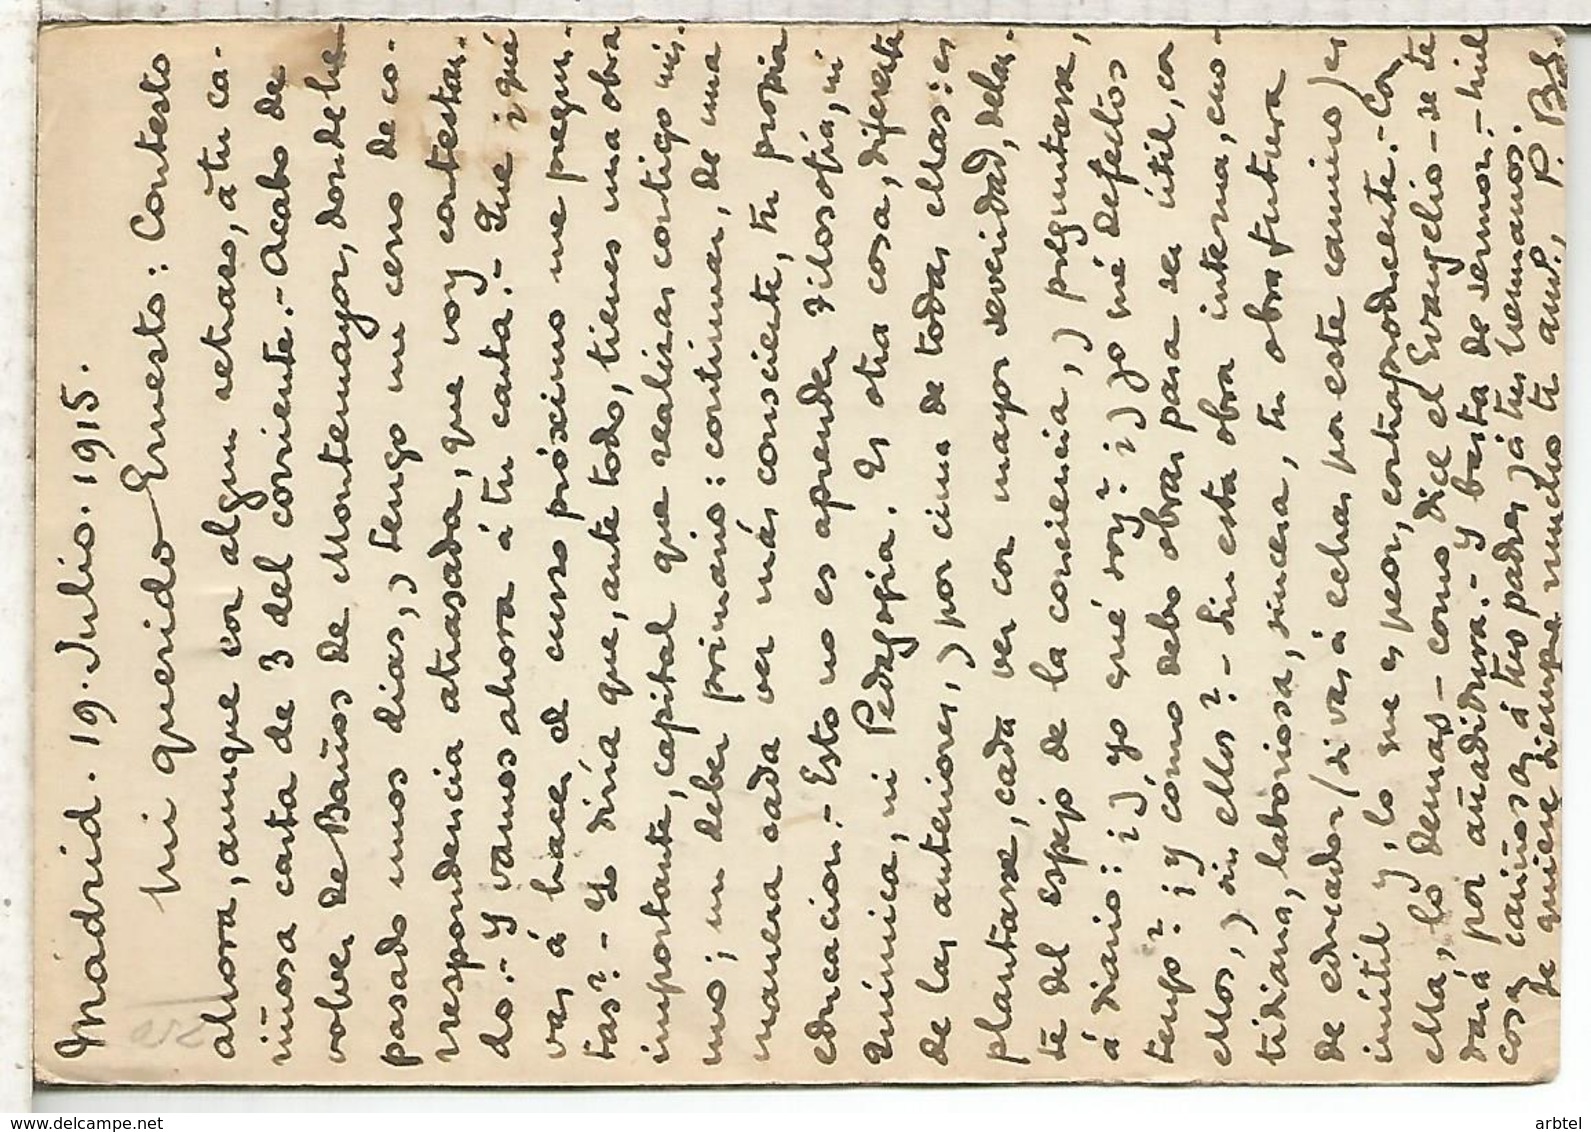 Madrid. 19. Julio. 1915.
Mi querido Ernesto: Contesto
ahora, aunque con algun retraso, á tu ca-
riñosa carta de 3 del corriente.- Acabo de
volver de Baños de Montemayor, donde he
pasado unos dias, y tengo un cerro de co-
rrespondencia atrasada, que voy contestan-
do.- Y vamos ahora á tu carta.- Que ¿qué
vas á hacer el curso próximo me pregun-
tas?- Yo diría que, ante todo, tienes una obra
importante, capital que realizar contigo mis-
mo; un deber primario: continuar, de una
manera cada vez más consciente, tu propia
educacion.- Esto no es aprender Filosofía, ni
Química, ni Pedagogía. Es otra cosa, diferente
de las anteriores, y por cima de todas ellas: es
plantarse, cada vez con mayor severidad, delan-
te del espejo de la conciencia, y preguntarse,
á diario: ¿y yo qué soy? ¿y yo qué defectos
tengo? ¿y cómo debo obrar para ser útil, con
ellos, y sin ellos?- Sin esta obra interna, cuo-
tidiana, laboriosa, sincera, tu obra futura
de educador (si vas á echar por este camino) es
inútil y, lo que es peor, contraproducente.- Con
ella, lo demas - como dice el Evangelio - se te
dará por añadidura.- Y basta de sermon.- Mil
cosas cariñosas á tus padres y á tus hermanos.
Te quiere siempre mucho tu am.º, P. Bl.
arbtel